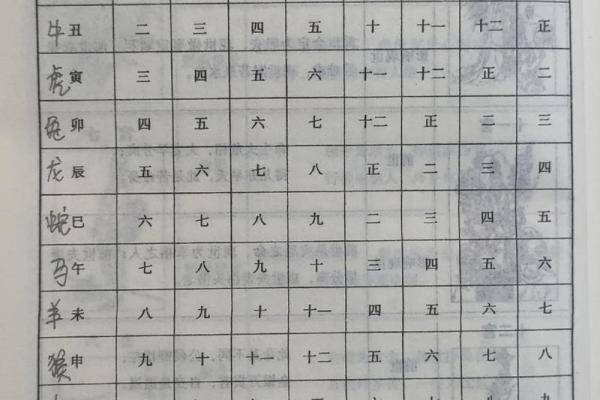 牛丑 二 三 四 五 十 十一 十二 正
虎寅 三 四 五 六 十一 十二 正 二
兔卯 四 五 六 七 十二 正 二 三
龙辰 五 六 七 八 正 二 三 四
蛇巳 六 七 八 九 二 三 四 五
马午 七 八 九 十 三 四 五 六
羊未 八 九 十 十一 四 五 六 七
猴申 九 十 十一 十二 五 六 七 八